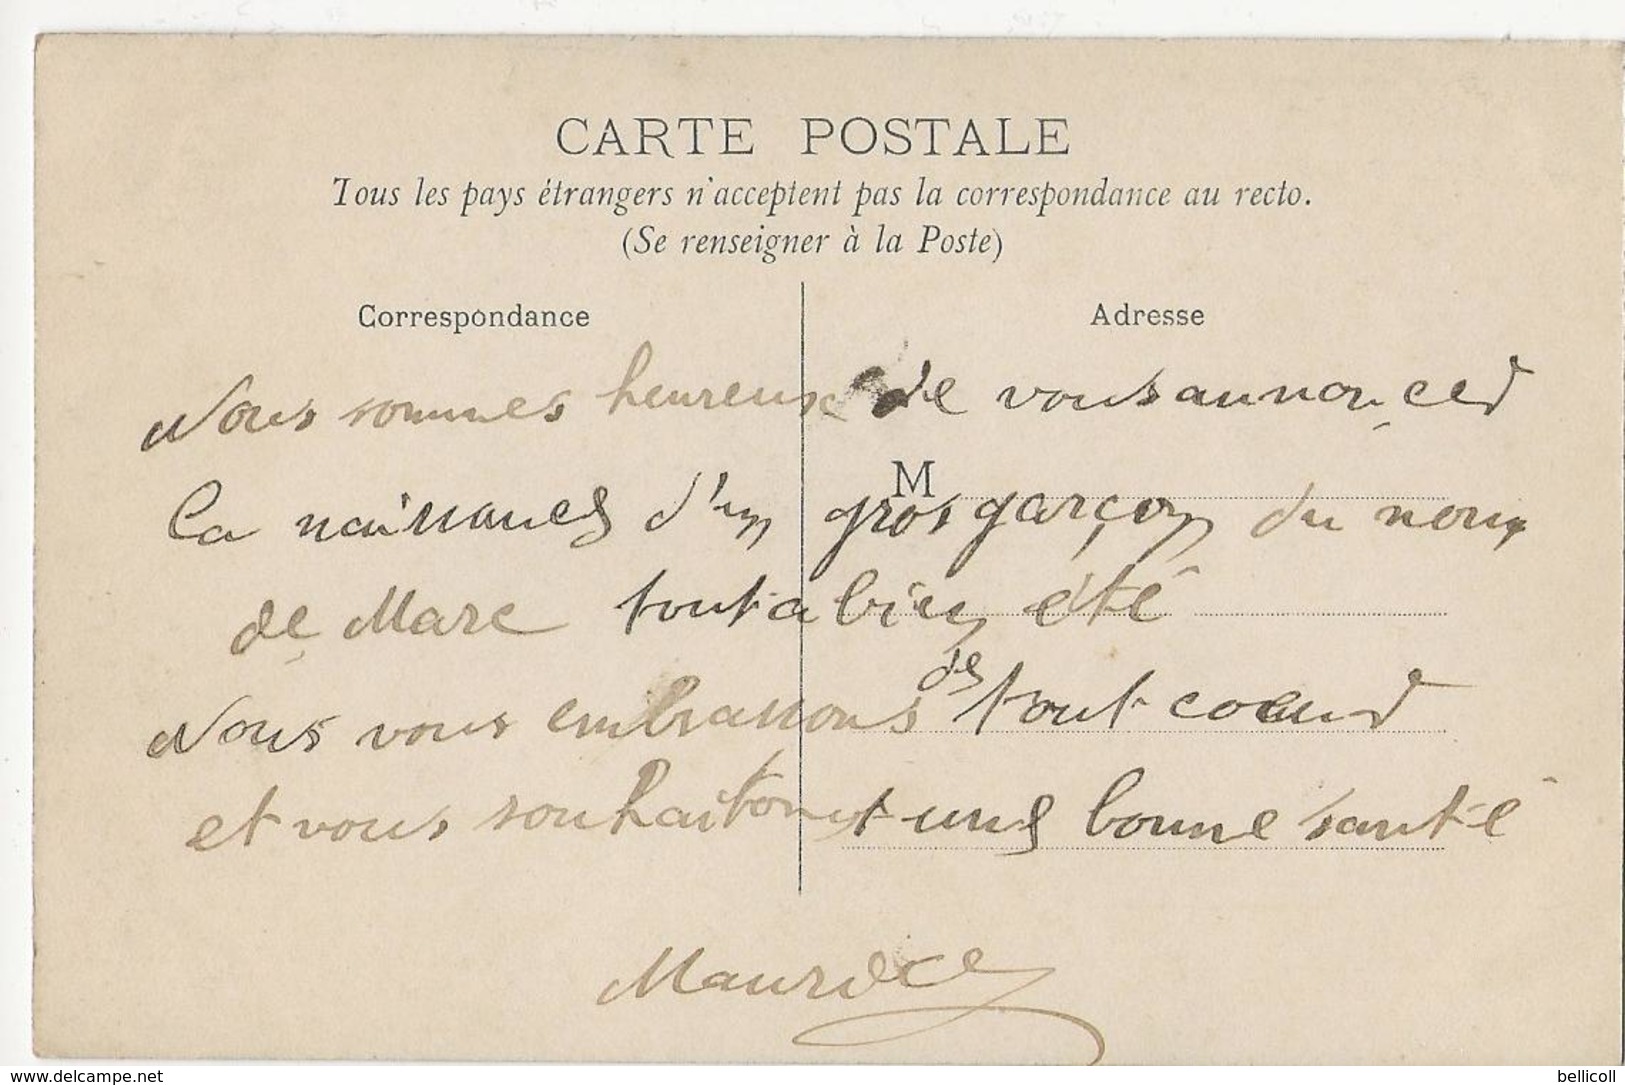 CARTE POSTALE
Tous les pays étrangers n'acceptent pas la correspondance au recto.
(Se renseigner à la Poste)
Correspondance
Adresse
Nous sommes heureuse de vous annoncer
M
la naissance d'un gros garçon du nom
de Marc tout a bien été
Nous vous embrassons de tout coeur
et vous souhaitons une bonne santé
Maurice
www.delcampe.net
bellicoll